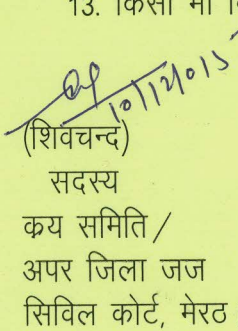 13. किसी भी
10/12/2015
(शिवचन्द)
सदस्य
क्रय समिति /
अपर जिला जज
सिविल कोर्ट, मेरठ